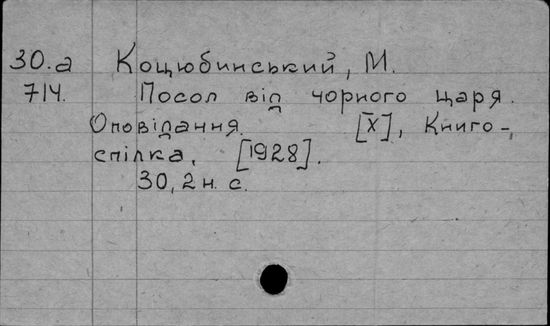 30.а Коцюбинський, М.
714. Посол від чорного царя.
Оповідання. [Х], Книго-
спілка, [1928].
30, 2 н. с.